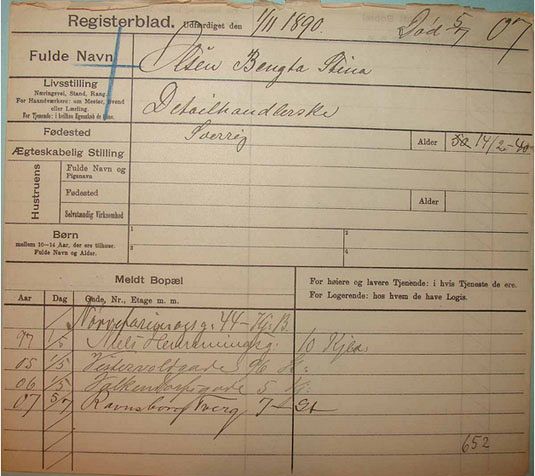 Registerblad. Udfærdiget den 1/11 1890. Død 5/7 07
Fulde Navn Olsen Bengta Stina
Livsstilling
Næringsvei, Stand, Rang.
For Haandværkere: om Mester, Svend
eller Lærling.
For Tjenende: i hvilken Egenskab de tjene.
Detailhandlerske
Fødested Sverrig Alder 14/2-40
Ægteskabelig Stilling
Hustruens
Fulde Navn og
Pigenavn
Fødested Alder
Selvstændig Virksomhed
Børn
mellem 10–14 Aar, der ere tilhuse.
Fulde Navn og Alder.
1 2
3 4
Meldt Bopæl
For høiere og lavere Tjenende: i hvis Tjeneste de ere.
For Logerende: hos hvem de have Logis.
Aar Dag Gade, Nr., Etage m. m.
Nørrefarimagsg. 44 – Kj. B.
97 1/5 Niels Hemmingsg. 10 Kjld.
05 1/5 Vestervoldgade 96 St:
06 1/5 Falkonergade 5
07 5/7 Ravnsborg Tverg 7 – St
652